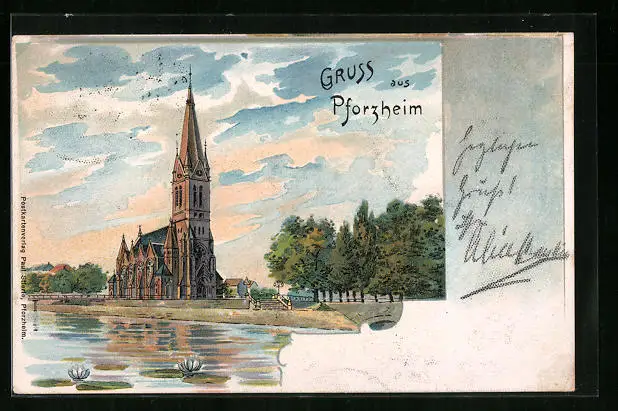 GRUSS aus
Pforzheim
Herzlichen
Gruß!
Postkartenverlag Paul Pforzheim.